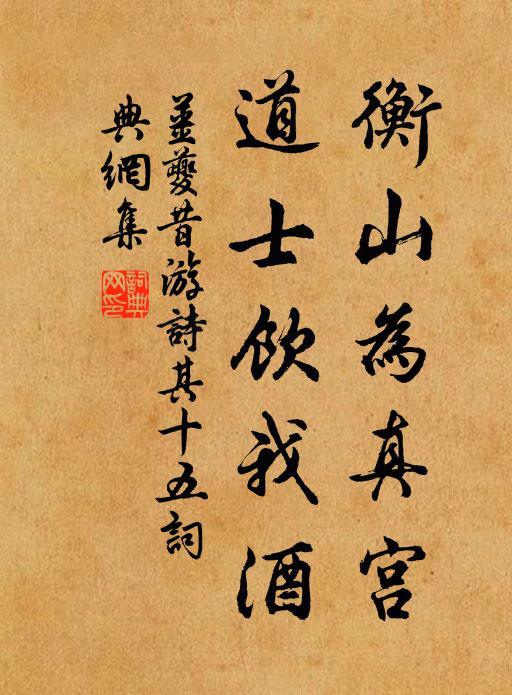 衡山為真宮
道士飲我酒
姜夔昔游詩其十五詞
典網集
詞典網印